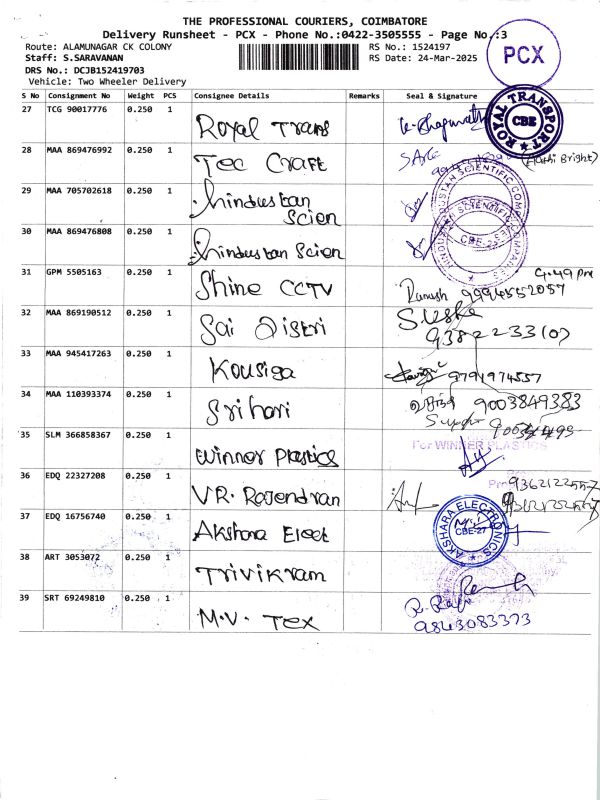 THE PROFESSIONAL COURIERS, COIMBATORE
Delivery Runsheet - PCX - Phone No.:0422-3505555 - Page No.:3
Route: ALAMUNAGAR CK COLONY
RS No.: 1524197
Staff: S.SARAVANAN
RS Date: 24-Mar-2025
DRS No.: DCJB152419703
Vehicle: Two Wheeler Delivery
PCX
S No Consignment No Weight PCS Consignee Details Remarks Seal & Signature
27 TCG 90017776 0.250 1 Royal Trans
ROYAL TRANSPORT CBE
28 MAA 869476992 0.250 1 Tec Craft
29 MAA 705702618 0.250 1 hindustan Scien
HINDUSTAN SCIENTIFIC COMPANIES
30 MAA 869476808 0.250 1 hindustan Scien
CBE-27
31 GPM 5505163 0.250 1 Shine CCTV 4.49 pm
Ramesh 9994552057
32 MAA 869190512 0.250 1 Sai Distri
9382233107
33 MAA 945417263 0.250 1 Kousiga 9791974557
34 MAA 110393374 0.250 1 Srihari 9003849383
35 SLM 366858367 0.250 1 Winner Plastics
For WINNER PLASTICS
36 EDQ 22327208 0.250 1 V.R. Rajendran
37 EDQ 16756740 0.250 1 Akshara Elect
AKSHARA ELECTRONICS CBE-27
38 ART 3053072 0.250 1 Trivikram
39 SRT 69249810 0.250 1 M.V. Tex
9843083373